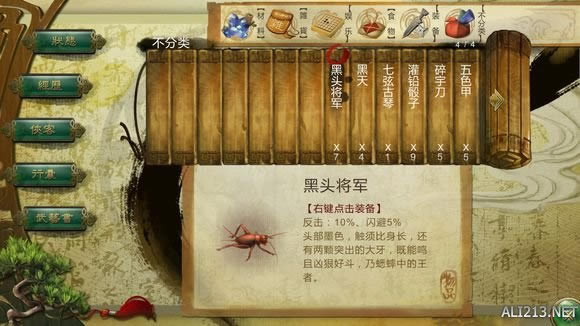 不分类
【材料】
【娱乐】
【食物】
【装备】
不分类
4/4
狀態
經歷
俠客
行囊
武藝書
黑头将军 X7
黑天 X4
七弦古琴 X1
灌铅骰子 X9
碎宇刀 X5
五色甲 X5
黑头将军
【右键点击装备】
反击：10%、闪避5%
头部墨色，触须比身长，还
有两颗突出的大牙，既能鸣
且凶狠好斗，乃蟋蟀中的王
者。
ALI213.NET